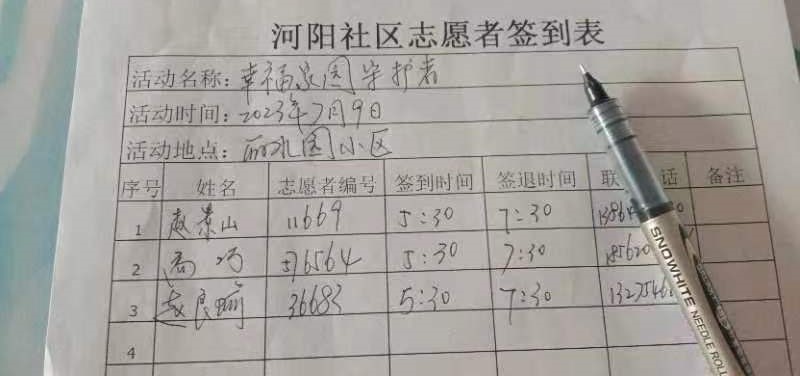 河阳社区志愿者签到表
活动名称：幸福家园守护者
活动时间：2023年7月9日
活动地点：丽水园小区
序号 姓名 志愿者编号 签到时间 签退时间 联 话 备注
1 赵景山 11669 5:30 7:30
2 高巧 76564 5:30 7:30
3 赵良瑜 36683 5:30 7:30
4
SNOWHITE NEEDLE ROLL